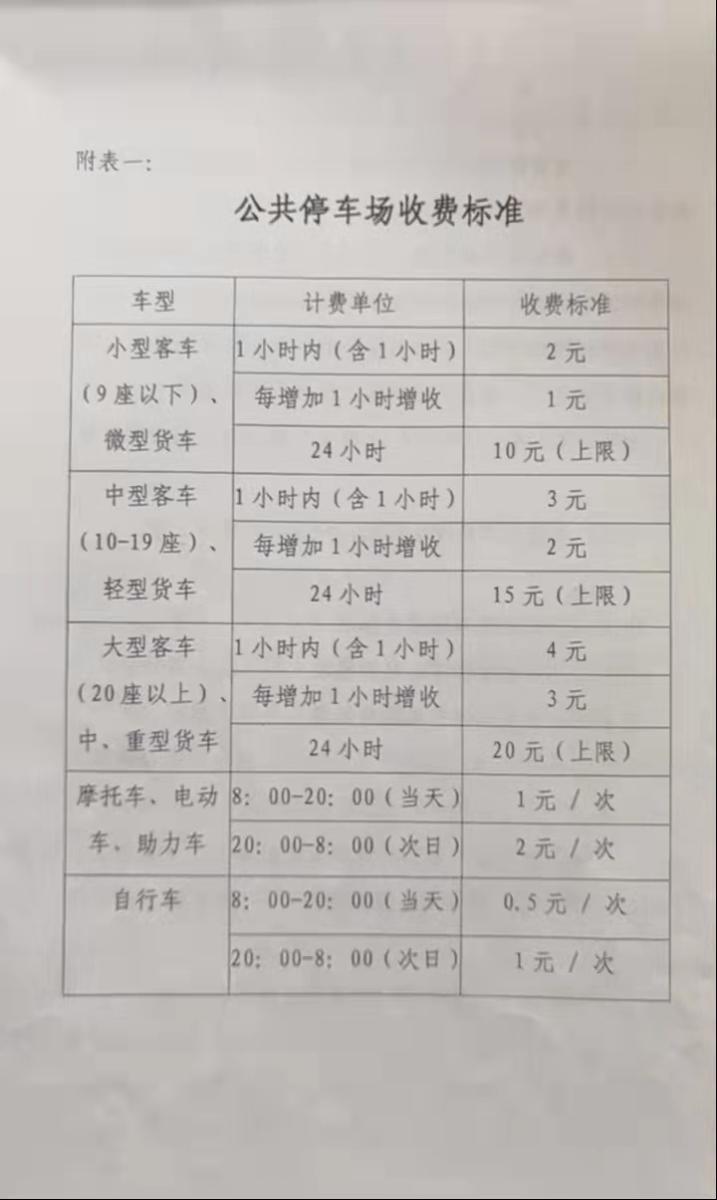 附表一:
公共停车场收费标准
车型 计费单位 收费标准
小型客车 1小时内(含1小时) 2元
(9座以下)、 每增加1小时增收 1元
微型货车 24小时 10元(上限)
中型客车 1小时内(含1小时) 3元
(10-19座)、 每增加1小时增收 2元
轻型货车 24小时 15元(上限)
大型客车 1小时内(含1小时) 4元
(20座以上)、 每增加1小时增收 3元
中、重型货车 24小时 20元(上限)
摩托车、电动 8: 00-20: 00(当天) 1元 / 次
车、助力车 20: 00-8: 00(次日) 2元 / 次
自行车 8: 00-20: 00(当天) 0.5元 / 次
20: 00-8: 00(次日) 1元 / 次